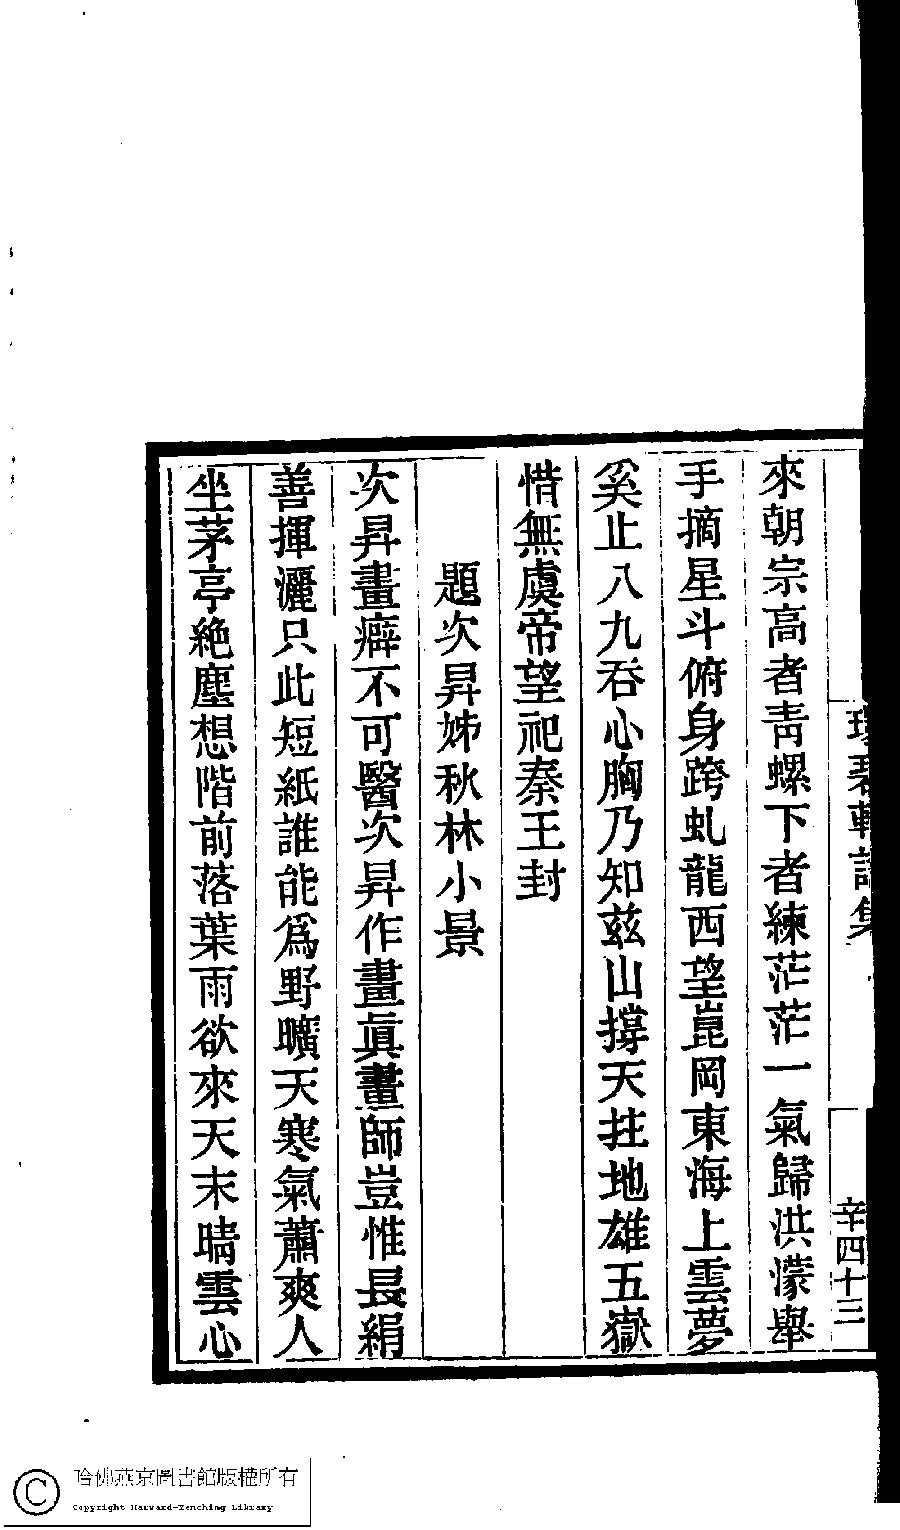 軒詩集
辛四十三
來朝宗高者靑螺下者練茫茫一氣歸洪濛舉
手摘星斗俯身跨虬龍西望崑岡東海上雲夢
奚止八九吞心胸乃知兹山撐天拄地雄五嶽
惜無虞帝望祀秦王封
題次昇姊秋林小景
次昇畫癖不可醫次昇作畫眞畫師豈惟長絹
善揮灑只此短紙誰能爲野曠天寒氣蕭爽人
坐茅亭絶塵想階前落葉雨欲來天末晴雲心
哈佛燕京圖書館版權所有
Copyright Harvard-Yenching Library